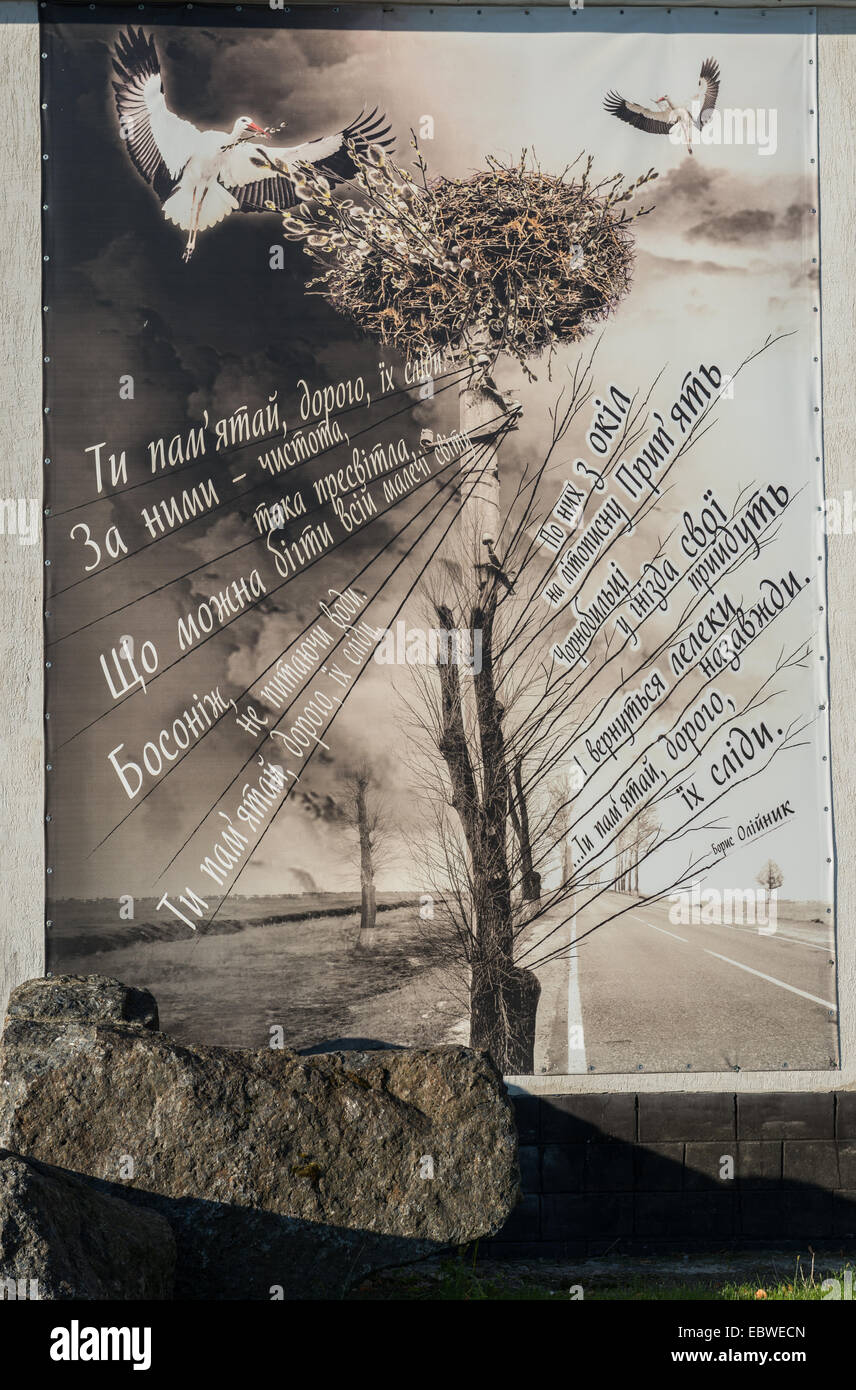 Ти пам'ятай, дорого, їх сліди.
За ними – чистота,
така пресвітла,
Що можна бігти всій малечі світу
Босоніж,
не питаючи води.
Ти пам'ятай, дорого, їх сліди.
По них з окіл
на літописну Прип'ять
Чорнобильці
у гнізда свої
прийдуть
І вернуться лелеки
назавжди.
...Ти пам'ятай, дорого,
їх сліди.
Борис Олійник
alamy stock photo
EBWECN